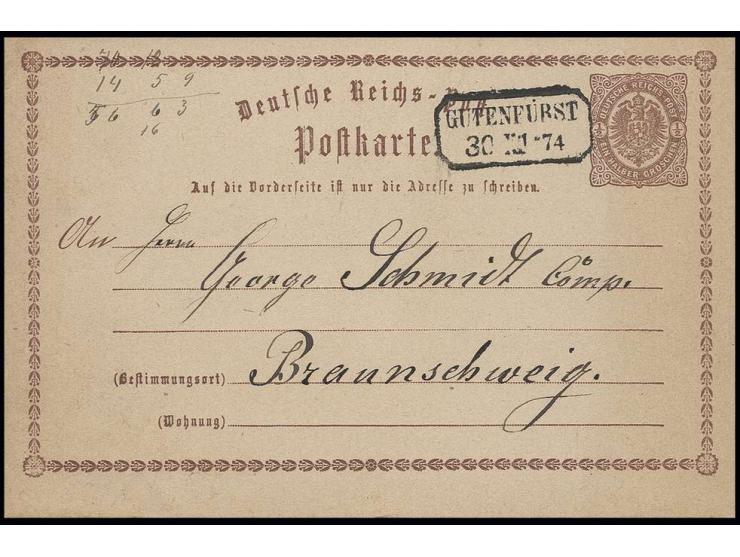 70 12
14 5 9
56 6 3
16
Deutsche Reichs-Post
Postkarte.
GUTENFÜRST
30 XII 74
DEUTSCHE REICHS-POST
½ ½
EIN HALBER GROSCHEN
Auf die Vorderseite ist nur die Adresse zu schreiben.
An Herrn
George Schmidt Comp.
(Bestimmungsort) Braunschweig.
(Wohnung)